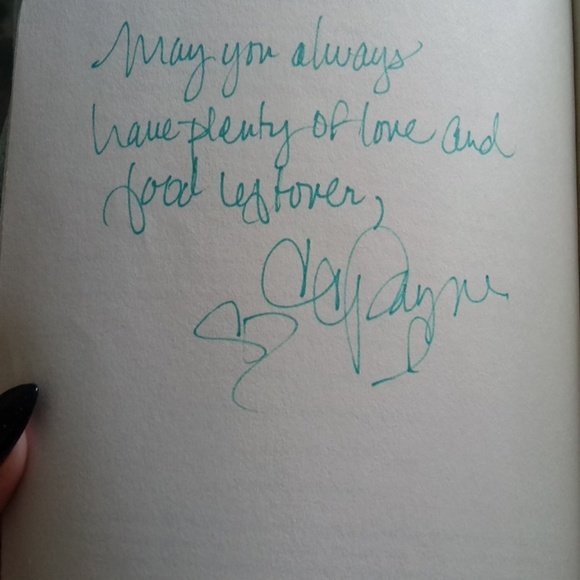 May you always
have plenty of love and
food leftover,
Payne